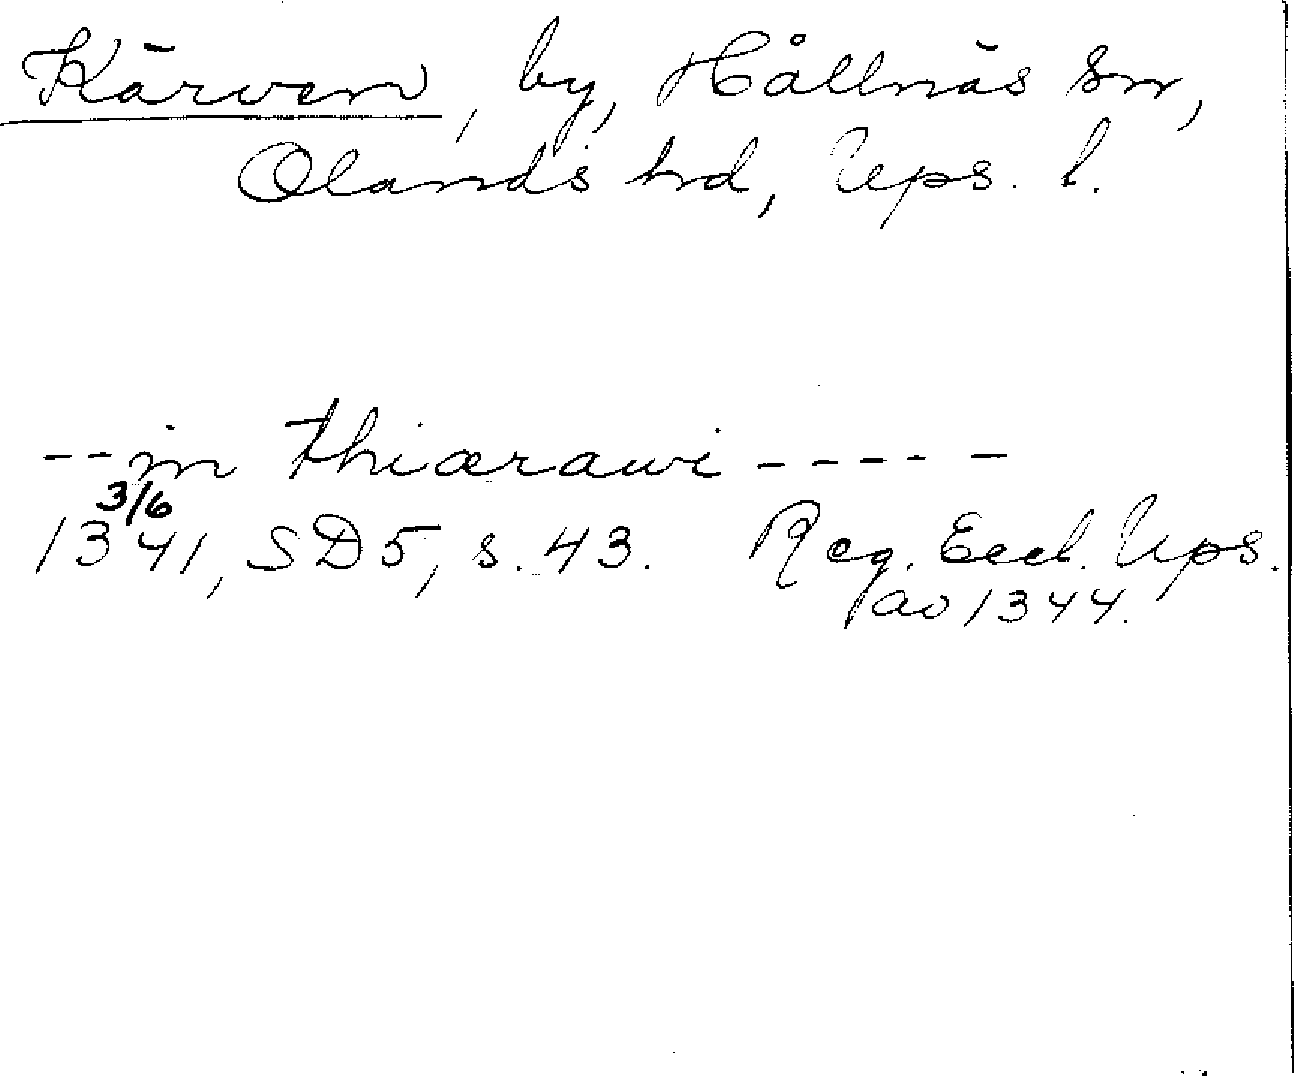 Kärven, by, Hållnäs sn,
Olands hd, Ups. l.
--in thiærawi-----
3/6
1341, SD5, s. 43. Reg. Eccl. Ups.
av 1344.